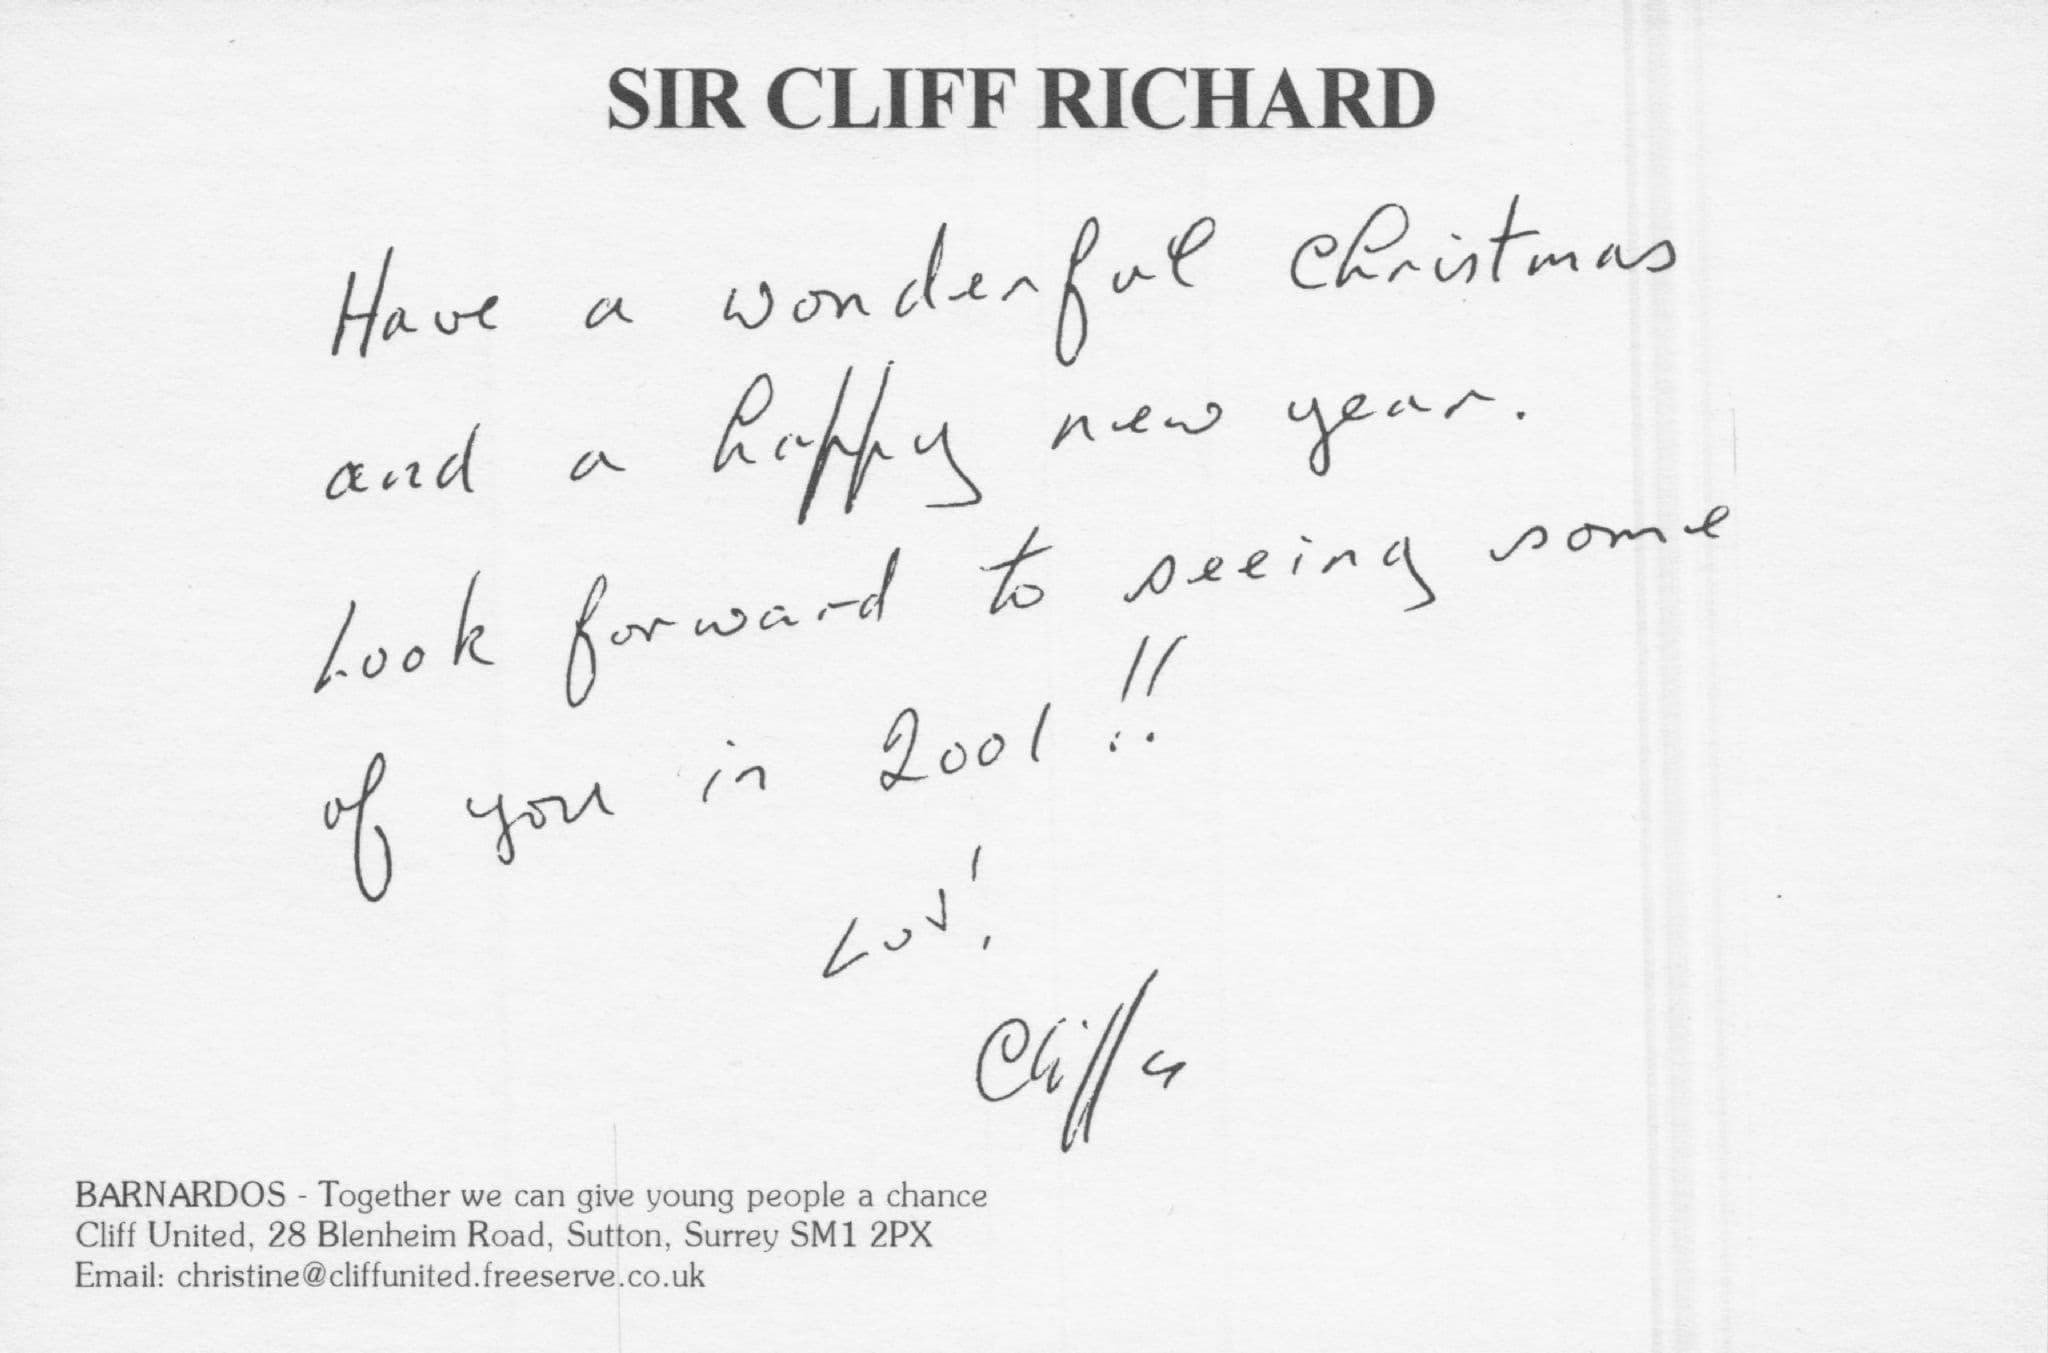 SIR CLIFF RICHARD
Have a wonderful Christmas
and a happy new year.
Look forward to seeing some
of you in 2001!!
Luv!
Cliff
BARNARDOS - Together we can give young people a chance
Cliff United, 28 Blenheim Road, Sutton, Surrey SM1 2PX
Email: christine@cliffunited.freeserve.co.uk